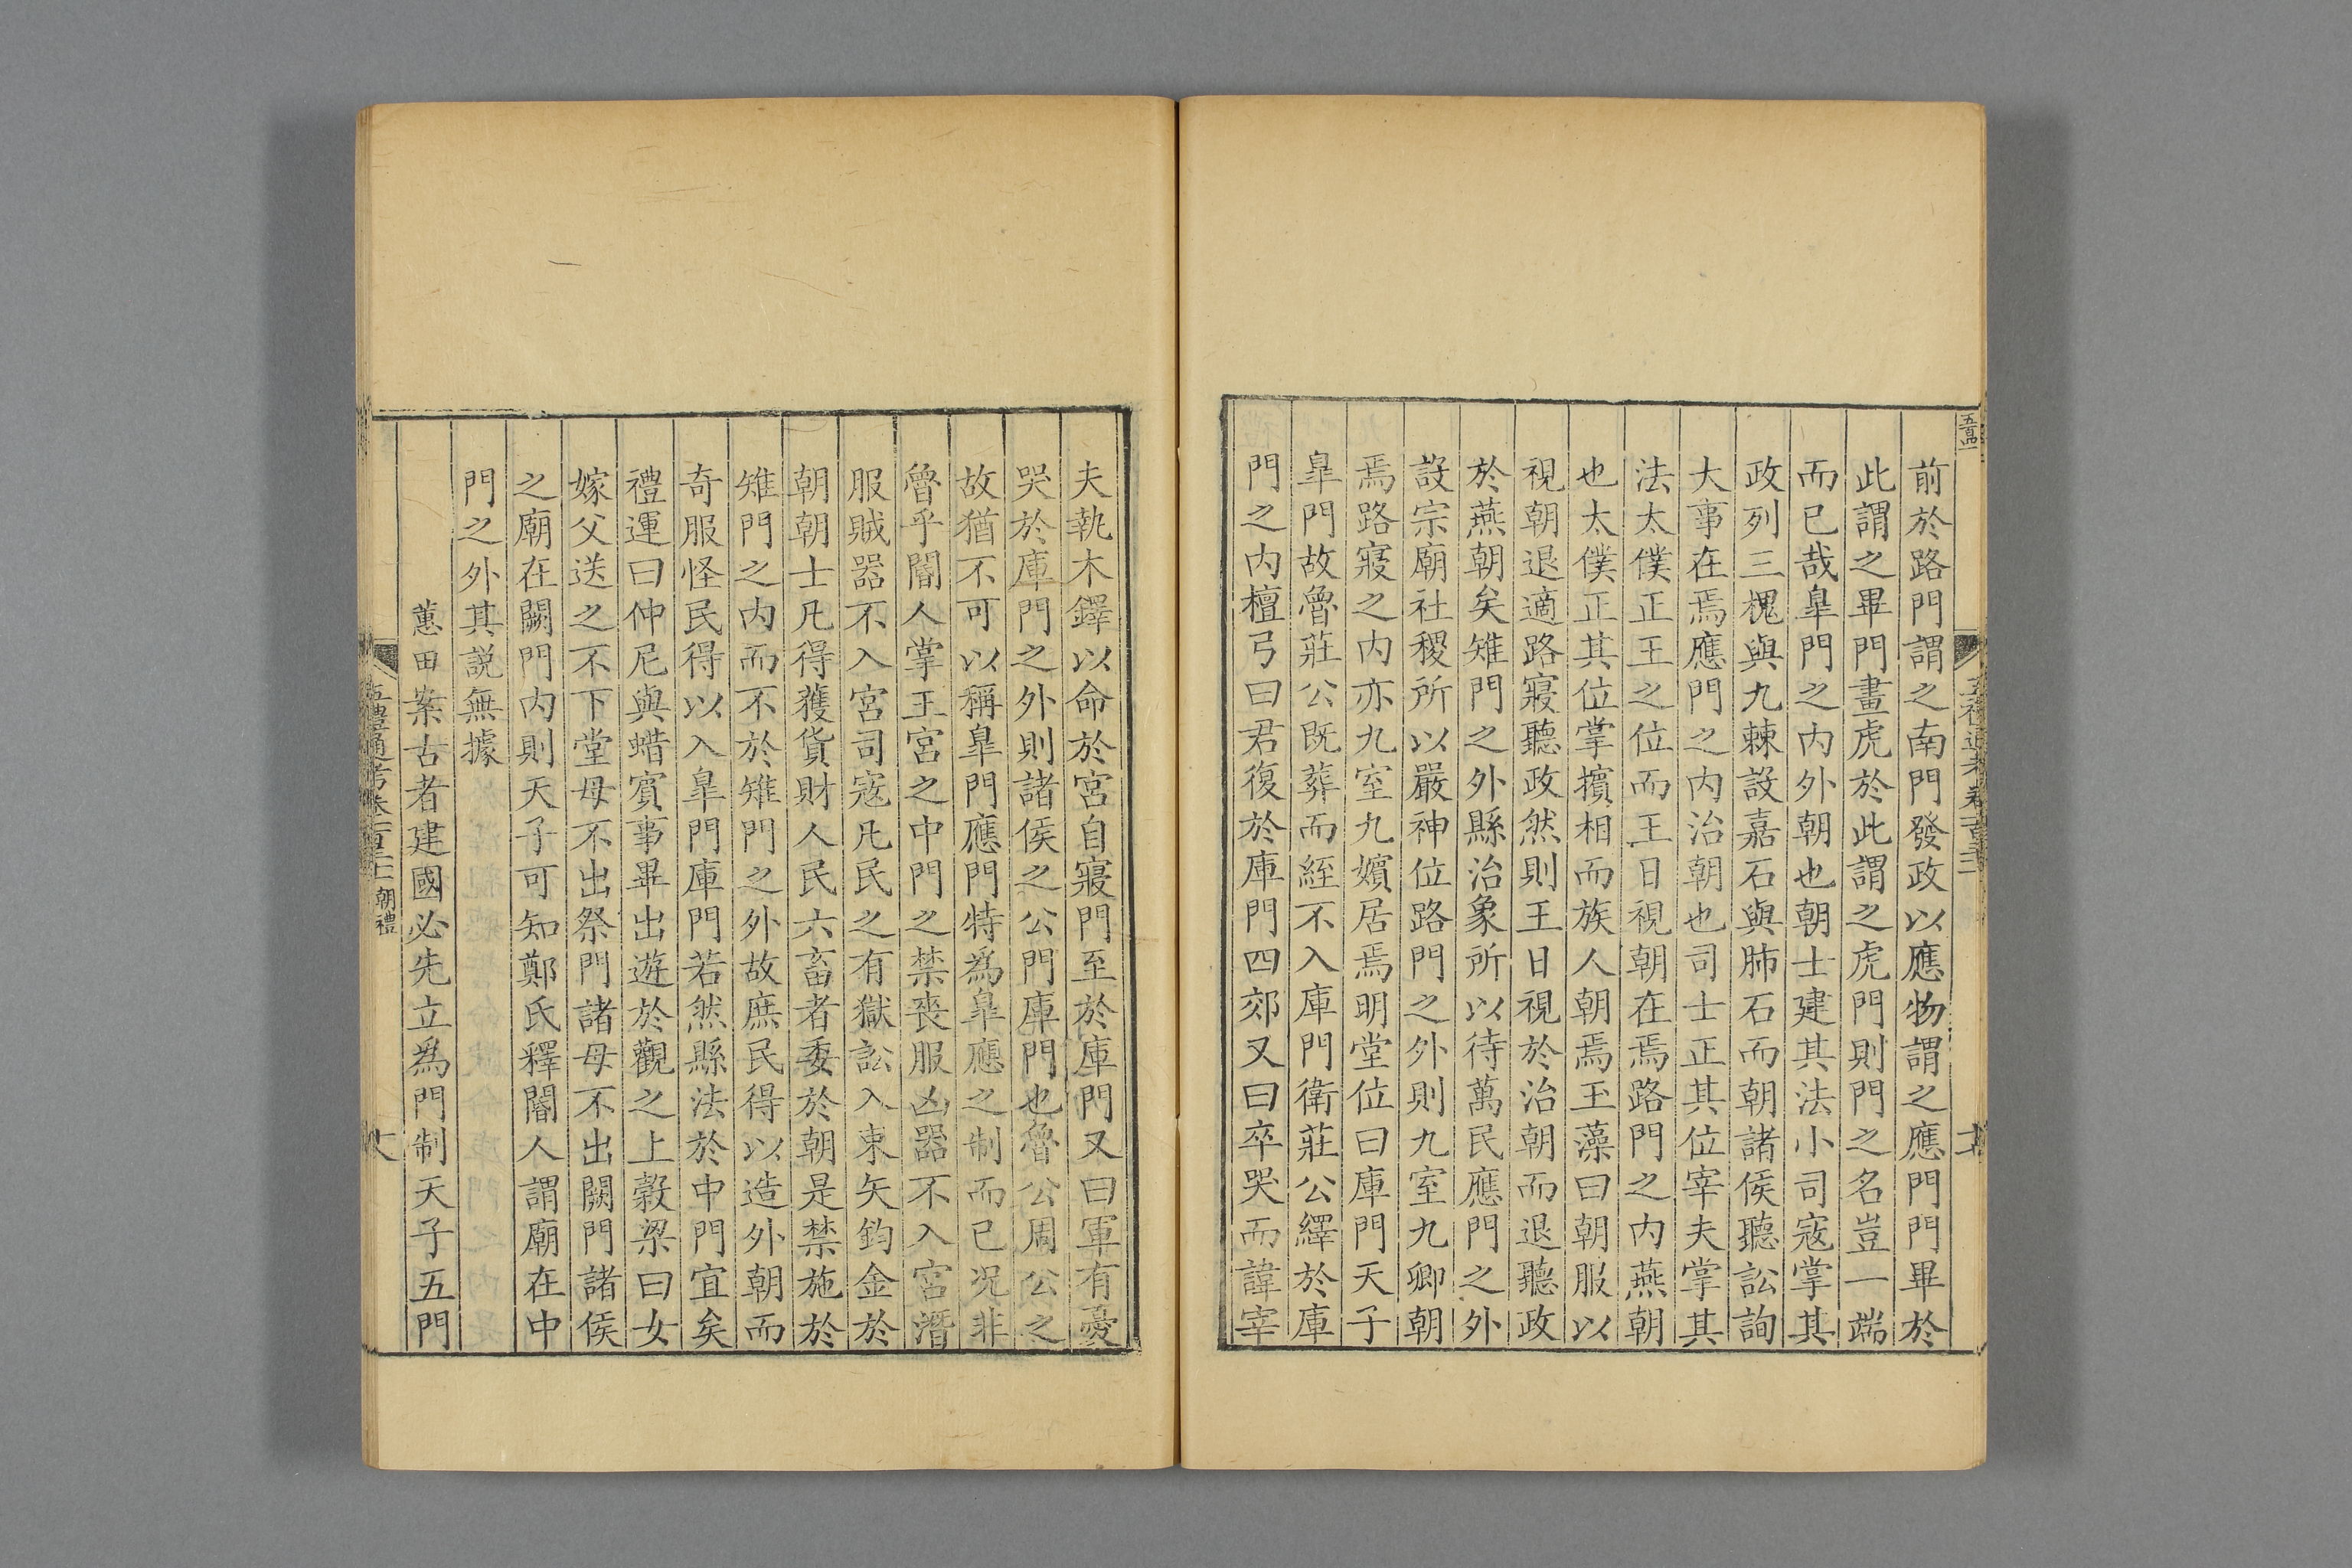 前於路門謂之南門發政以應物謂之應門門畢於
此謂之畢門畫虎於此謂之虎門則門之名豈一端
而已哉臯門之内外朝也朝士建其法小司寇掌其
政列三槐與九棘設嘉石與肺石而朝諸侯聽訟詢
大事在焉應門之内治朝也司士正其位宰夫掌其
法太僕正王之位而王日視朝在焉路門之内燕朝
也太僕正其位掌擯相而族人朝焉玉藻曰朝服以
視朝退適路寢聽政然則王日視於治朝而退聽政
於燕朝矣雉門之外縣治象所以待萬民應門之外
設宗廟社稷所以嚴神位路門之外則九室九卿朝
焉路寢之内亦九室九嬪居焉明堂位曰庫門天子
臯門故魯莊公既葬而絰不入庫門衛莊公繹於庫
門之内檀弓曰君復於庫門四郊又曰卒哭而諱宰
夫執木鐸以命於宮自寢門至於庫門又曰軍有憂
哭於庫門之外則諸侯之公門庫門也魯公周公之
故猶不可以稱臯門應門特為臯應之制而已况非
魯乎閽人掌王宮之中門之禁喪服凶器不入宮潛
服賊器不入宮司寇凡民之有獄訟入束矢鈞金於
朝朝士凡得獲貨財人民六畜者委於朝是禁施於
雉門之内而不於雉門之外故庶民得以造外朝而
奇服怪民得以入臯門庫門若然縣法於中門宜矣
禮運曰仲尼與蜡賓事畢出遊於觀之上穀梁曰女
嫁父送之不下堂母不出祭門諸母不出闕門諸侯
之廟在闕門内則天子可知鄭氏釋閽人謂廟在中
門之外其説無據
蕙田案古者建國必先立爲門制天子五門
五禮通考卷一百三十二 朝禮